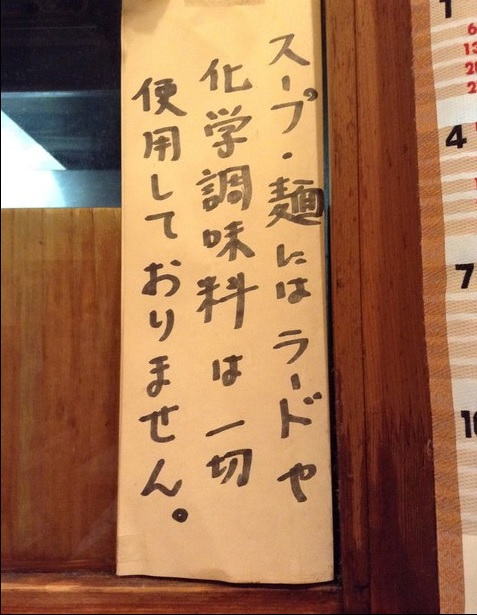 スープ・麺にはラードや
化学調味料は一切
使用しておりません。
1
4
7
10